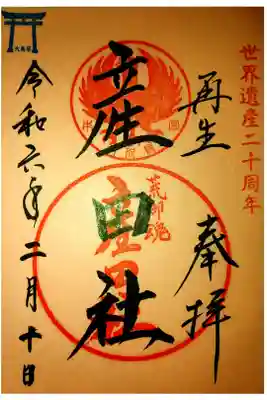 世界遺産二十周年
再生
奉拝
荒御魂
産田社
令和六年二月十日